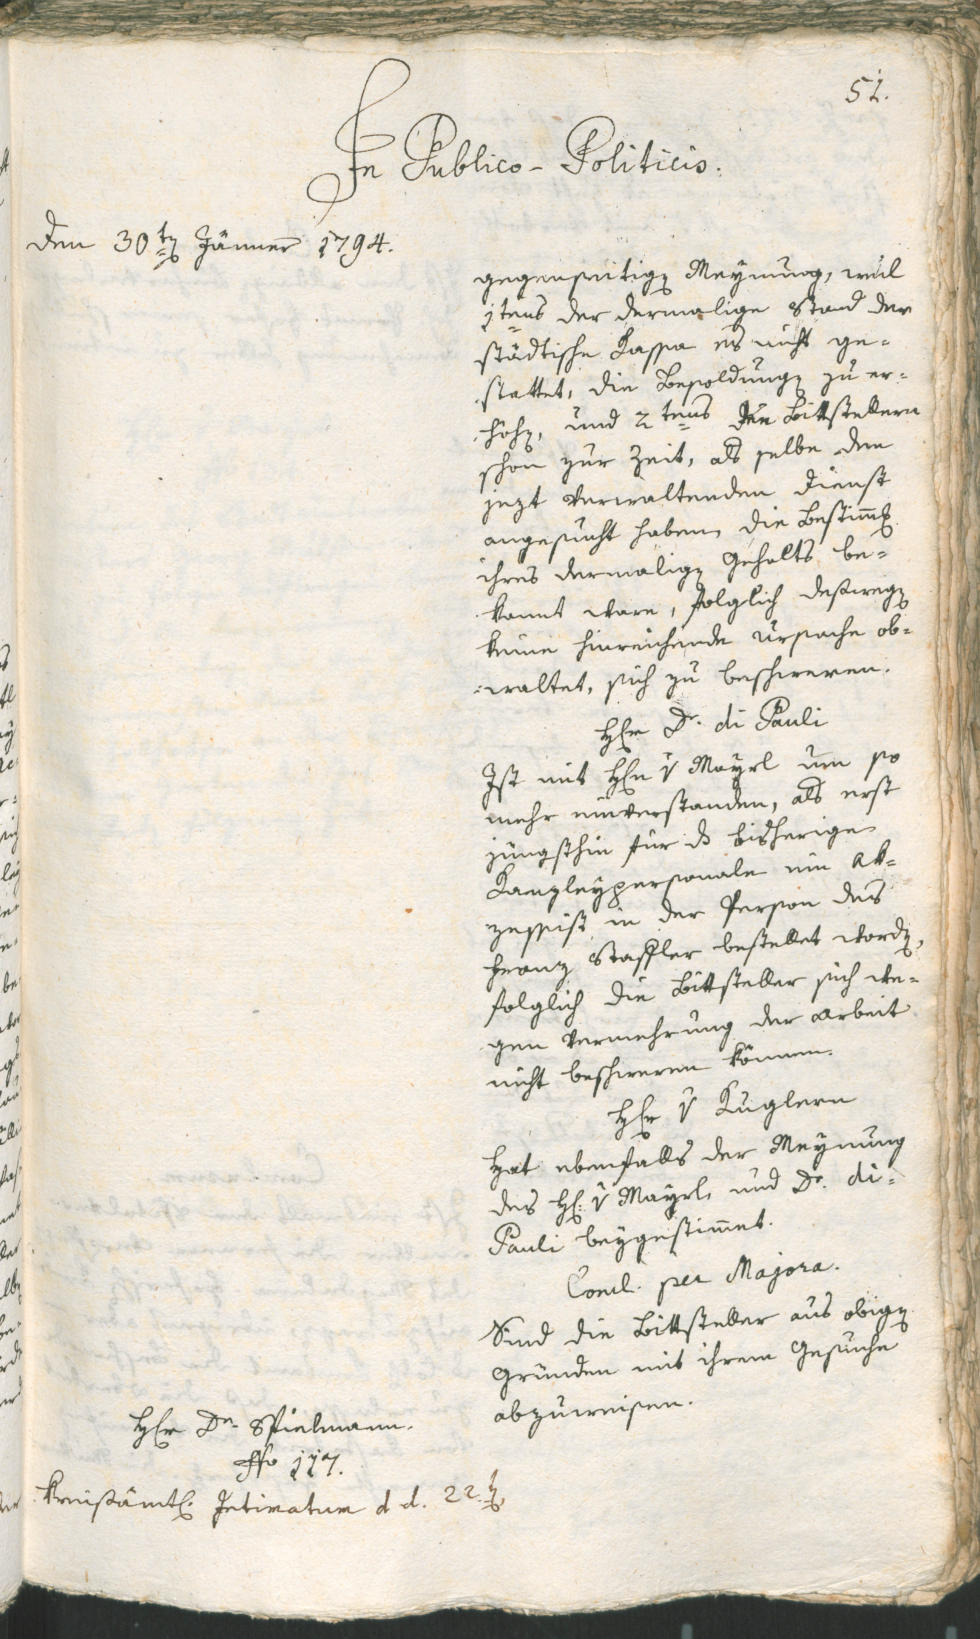 51.
In Publico-Politicis.
Den 30ten Jänner 1794.
gegenseitigen Meynung, weil
1tens der dermalige Stand der
städtische Kassa es nicht ge=
stattet, die Besoldungen zu er=
höhen, und 2tens den Bittstellern
schon zur Zeit, als selbe den
jezt verwaltenden Dienst
angesucht haben, die Bestimmung
ihres dermaligen Gehalts be=
kannt ware, folglich deßwegen
keine hinreichende Ursache ob=
=waltet, sich zu beschweren.
Herr Dr. di Pauli
Ist mit Herrn v Mayrl um so
mehr einverstanden, als erst
jüngsthin für das bisherige
Kanzleypersonale ein Ak=
zessist in der Person des
Franz Staffler bestellet worden,
folglich die Bittsteller sich we=
gen Vermehrung der Arbeit
nicht beschweren können.
Herr v Kuglern
Hat ebenfalls der Meynung
des H: v Mayrl, und Dr. di=
Pauli beygestimmet.
Concl. per Majora.
Sind die Bittsteller aus obigen
Gründen mit ihrem Gesuche
abzuweisen.
Herr Dr. Spielmann.
Nro 117.
Kreisämtl. Intimatum d d. 22ten